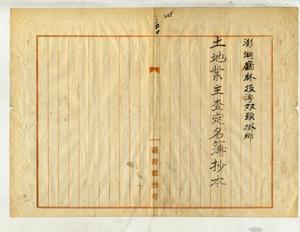 澎湖廳林投澳双頭掛鄉
土地業主查定名簿抄本
臺灣總督府